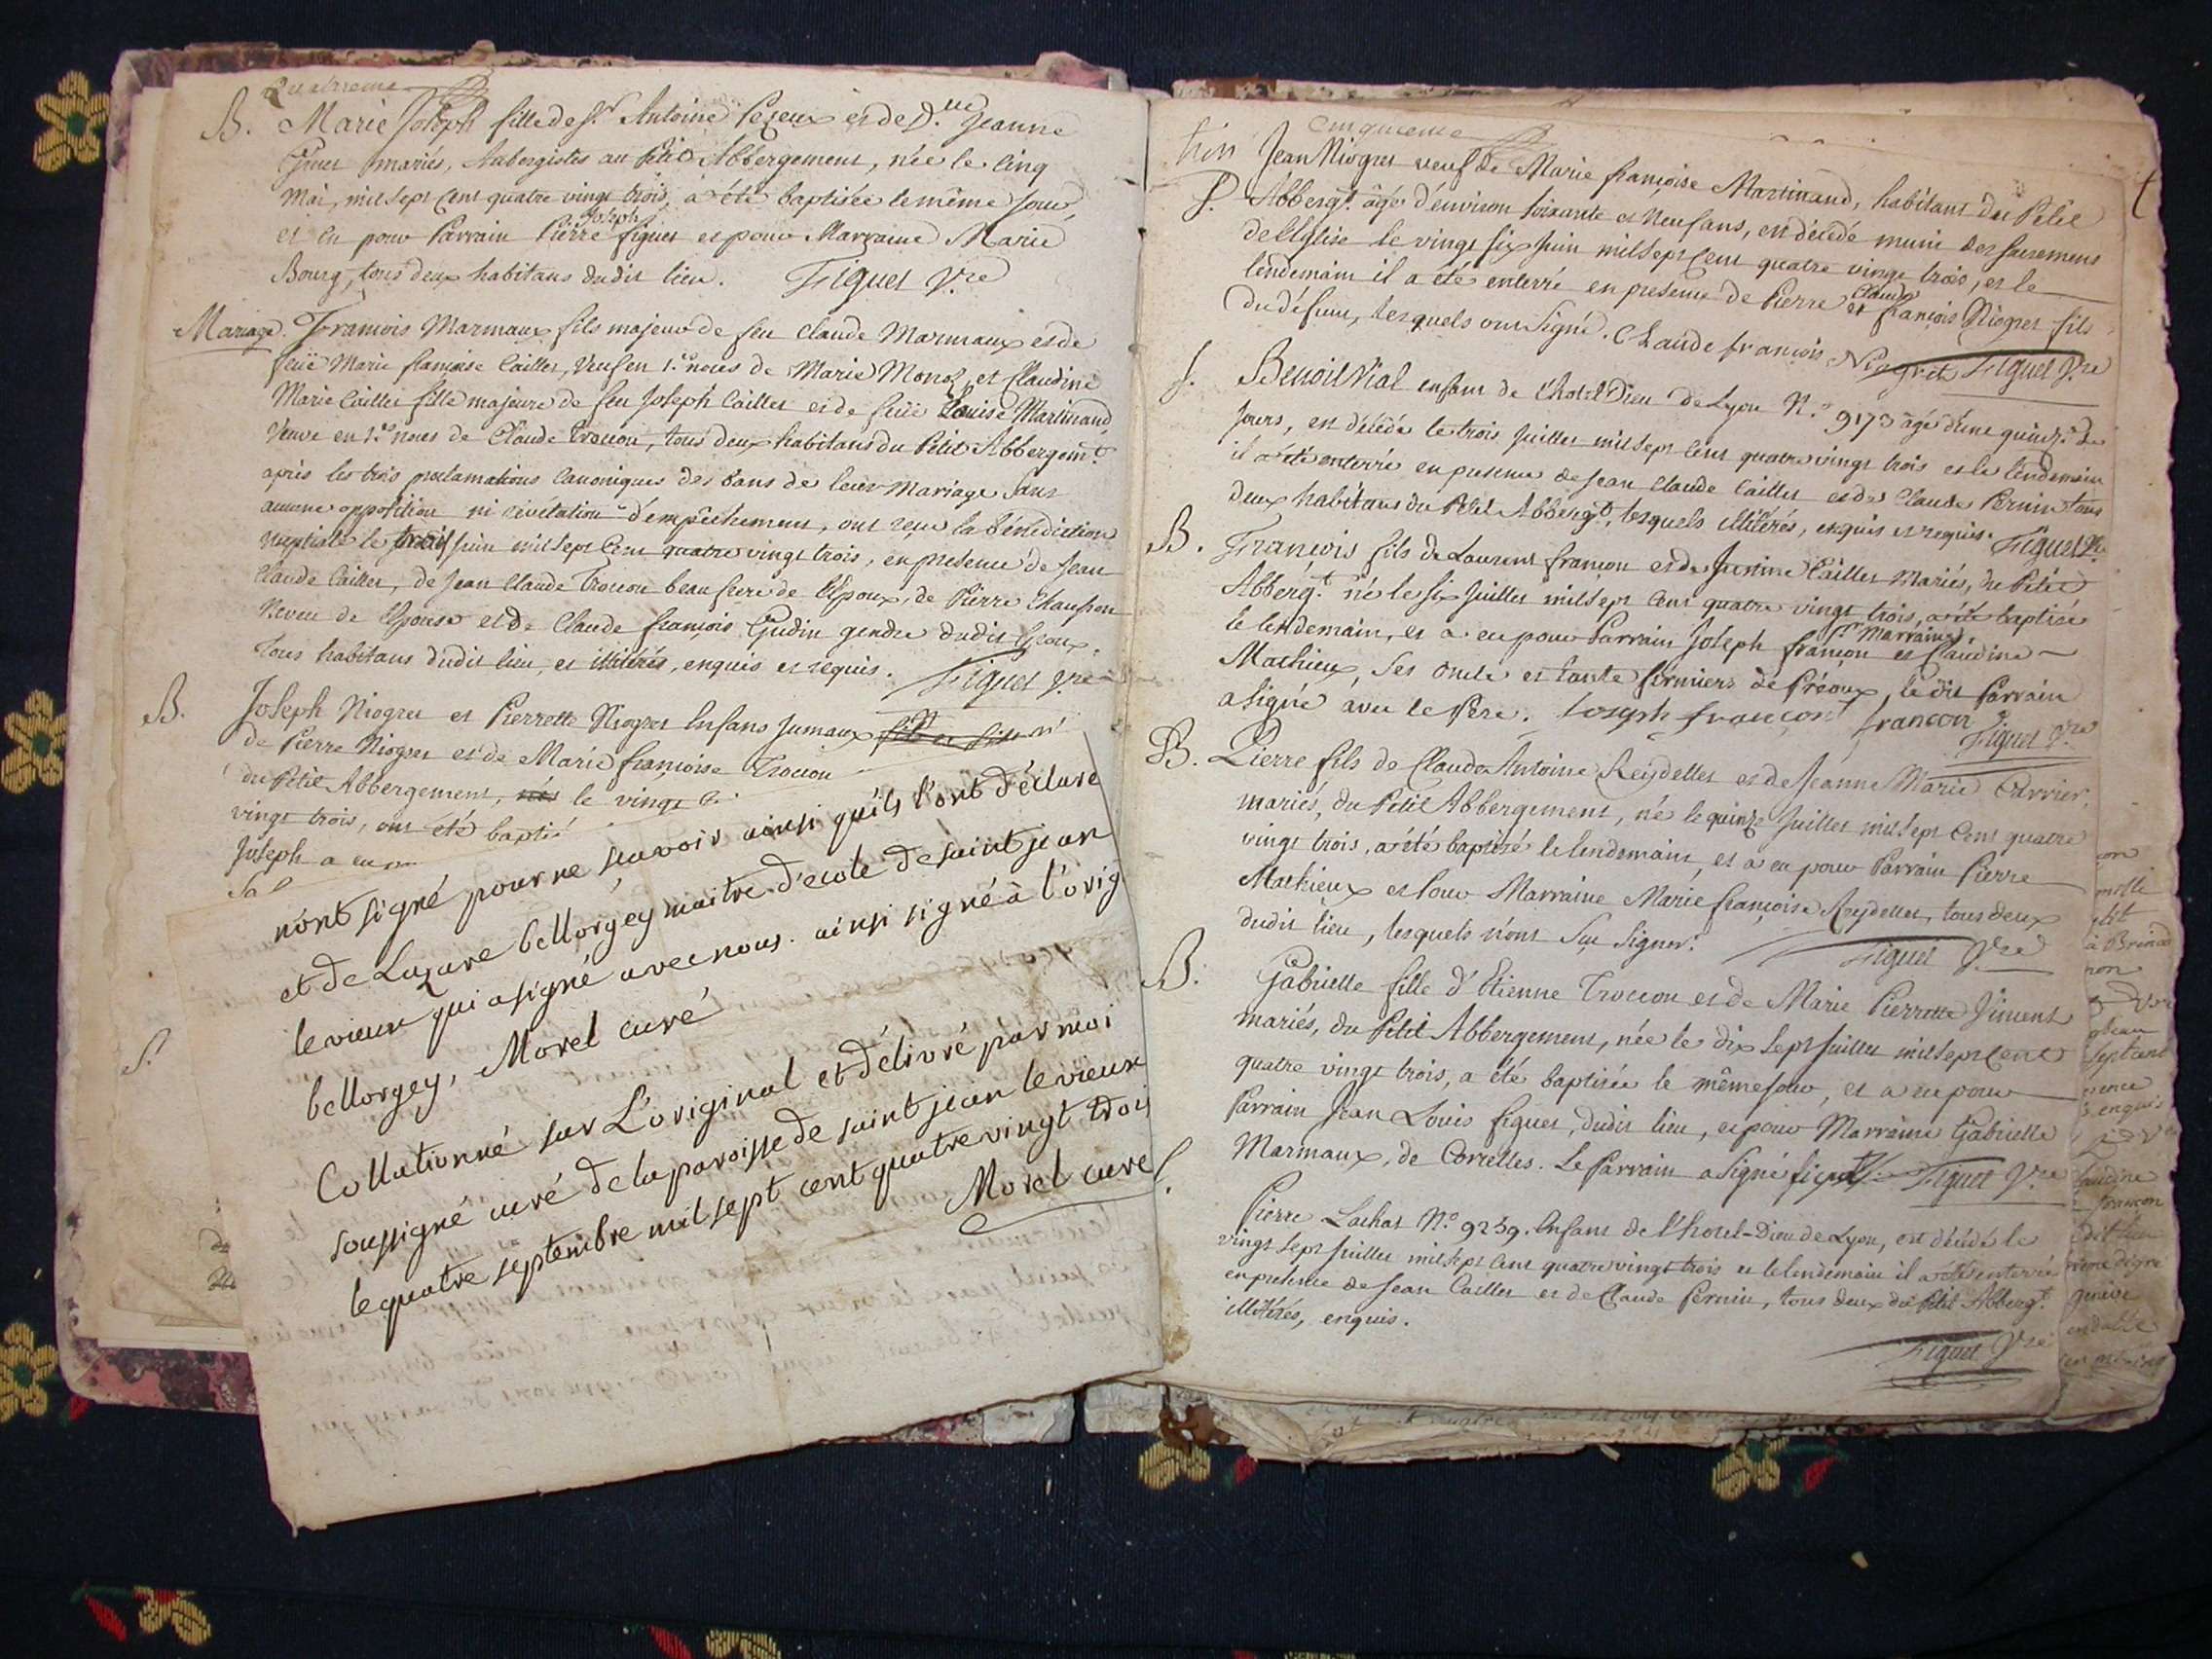 quatrieme
B. Marie Joseph fille de Sr. Antoine Pezeux et de D.lle Jeanne
mariés, Aubergistes au Petit Abbergement, née le cinq
mai, mil sept cent quatre vingt trois, a été baptisée le même jour,
et eu pour Parrain Pierre Joseph figuet et pour Marraine Marie
Bourg, tous deux habitans dudit lieu. Figuet Vre
Mariage. François Marmaux fils majeur de feu Claude Marmaux et de
feüe Marie françoise Caillet, Veuf en 1.res noces de Marie Monoz, et Claudine
Marie Caillet fille majeure de feu Joseph Caillet et de feüe Louise Martinand,
Veuve en 1.res noces de Claude Trocon, tous deux habitans du Petit Abbergemt.
après les trois proclamations canoniques des bans de leur Mariage sans
aucune opposition ni d'empêchement, ont reçu la bénédiction
nuptiale le trois juin mil sept cent quatre vingt trois, en presence de Jean
Claude Caillet, de Jean Claude Trocon beau frere de l'Epoux, de Pierre
Neveu de l'Epouse et de Claude françois Gudin gendre dudit Epoux,
Tous habitans dudit lieu, et illitérés, enquis et requis. Figuet Vre
B. Joseph Niogret et Pierrette Niogret Enfans Jumaux
de Pierre Niogret et de Marie françoise Trocon
du Petit Abbergement, nés le vingt
vingt trois, ont été baptisé
Joseph a eu
S.
n'ont signé pour ne sçavoir ainsi qu'ils l'ont déclaré
et de Lazare bellorgey maitre d'ecole de saint jean
le vieux qui a signé avec nous. ainsi signé à l'orig
bellorgey, Morel curé
Collationné sur L'original et délivré par moi
soussigné curé de la paroisse de saint jean le vieux
le quatre septembre mil sept cent quatre vingt trois
Morel curé
cinquieme
Jean Niogret veuf de Marie françoise Martinand, habitant du Petit
S. Abbergt. âgé d'environ soixante et neuf ans, est décédé muni des sacremens
de l'Eglise le vingt six juin mil sept cent quatre vingt trois, et le
lendemain il a été enterré en presence de Pierre et Claude françois Niogret fils
du défunt, lesquels ont signé. Claude françois Niogret Figuet Vre
S. Benoit Vial enfant de l'hotel Dieu de Lyon N.o 9173 âgé d'une quinze. de
jours, est décédé le trois juillet mil sept cent quatre vingt trois et le lendemain
il a été enterré en presence de Jean Claude Caillet et de Claude Pernin tous
deux habitans du Petit Abbergt, lesquels illitérés, enquis et requis. Figuet Vre
B. François fils de Laurent françon et de Justine Caillet Mariés, du Petit
Abbergt. né le six juillet mil sept cent quatre vingt trois, a été baptisé
le lendemain, et a eu pour Parrain Joseph françon et pr. Marraine Claudine
Mathieux, ses oncle et tante fermiers de Préoux, le dit Parrain
a signé avec le Pere. Joseph françon françon
Figuet Vre
B. Pierre fils de Claude Antoine Reydellet et de Jeanne Marie Carrier,
mariés, du Petit Abbergement, né le quinze juillet mil sept cent quatre
vingt trois, a été baptisé le lendemain, et a eu pour Parrain Pierre
Mathieux et pour Marraine Marie françoise Reydellet, tous deux
dudit lieu, lesquels n'ont sçu signer. Figuet Vre
B. Gabrielle fille d'Etienne Trocon et de Marie Pierrette
mariés, du Petit Abbergement, née le dix sept juillet mil sept cent
quatre vingt trois, a été baptisée le même jour, et a eu pour
Parrain Jean Louis figuet, dudit lieu, et pour Marraine Gabrielle
Marmaux, de Corcelles. Le Parrain a signé figuet Figuet Vre
S. Pierre Lachat N.o 9239. Enfant de l'hotel-Dieu de Lyon, est décédé le
vingt sept juillet mil sept cent quatre vingt trois et le lendemain il a été enterré
en présence de Jean Caillet et de Claude Pernin, tous deux du Petit Abbergt.
illitérés, enquis.
Figuet Vre
sept cent
enquis